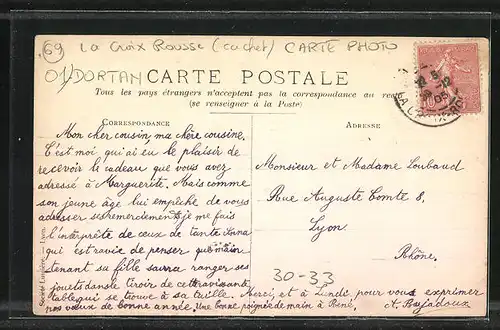 69 La Croix Rousse (cachet) CARTE PHOTO
01/DORTAN
CARTE POSTALE
Tous les pays étrangers n'acceptent pas la correspondance au
(se renseigner à la Poste)
CORRESPONDANCE
ADRESSE
Mon cher cousin, ma chère cousine.
C'est moi, qui ai eu le plaisir de
recevoir le cadeau que vous avez
adressé à Marguerite. Mais comme
son jeune âge lui empêche de vous
adresser ses remerciements, je me fais
l'interprète de ceux de tante
qui est ravie de penser que main
tenant sa fille saura ranger ses
jouets dans le tiroir de cette ravissante
table qui se trouve à sa taille. Merci, et à Lundi pour vous exprimer
nos vœux de bonne année. Une bonne poignée de main à René.
Monsieur et Madame Loubaud
Rue Auguste Comte 8,
Lyon
Rhône.
30-33